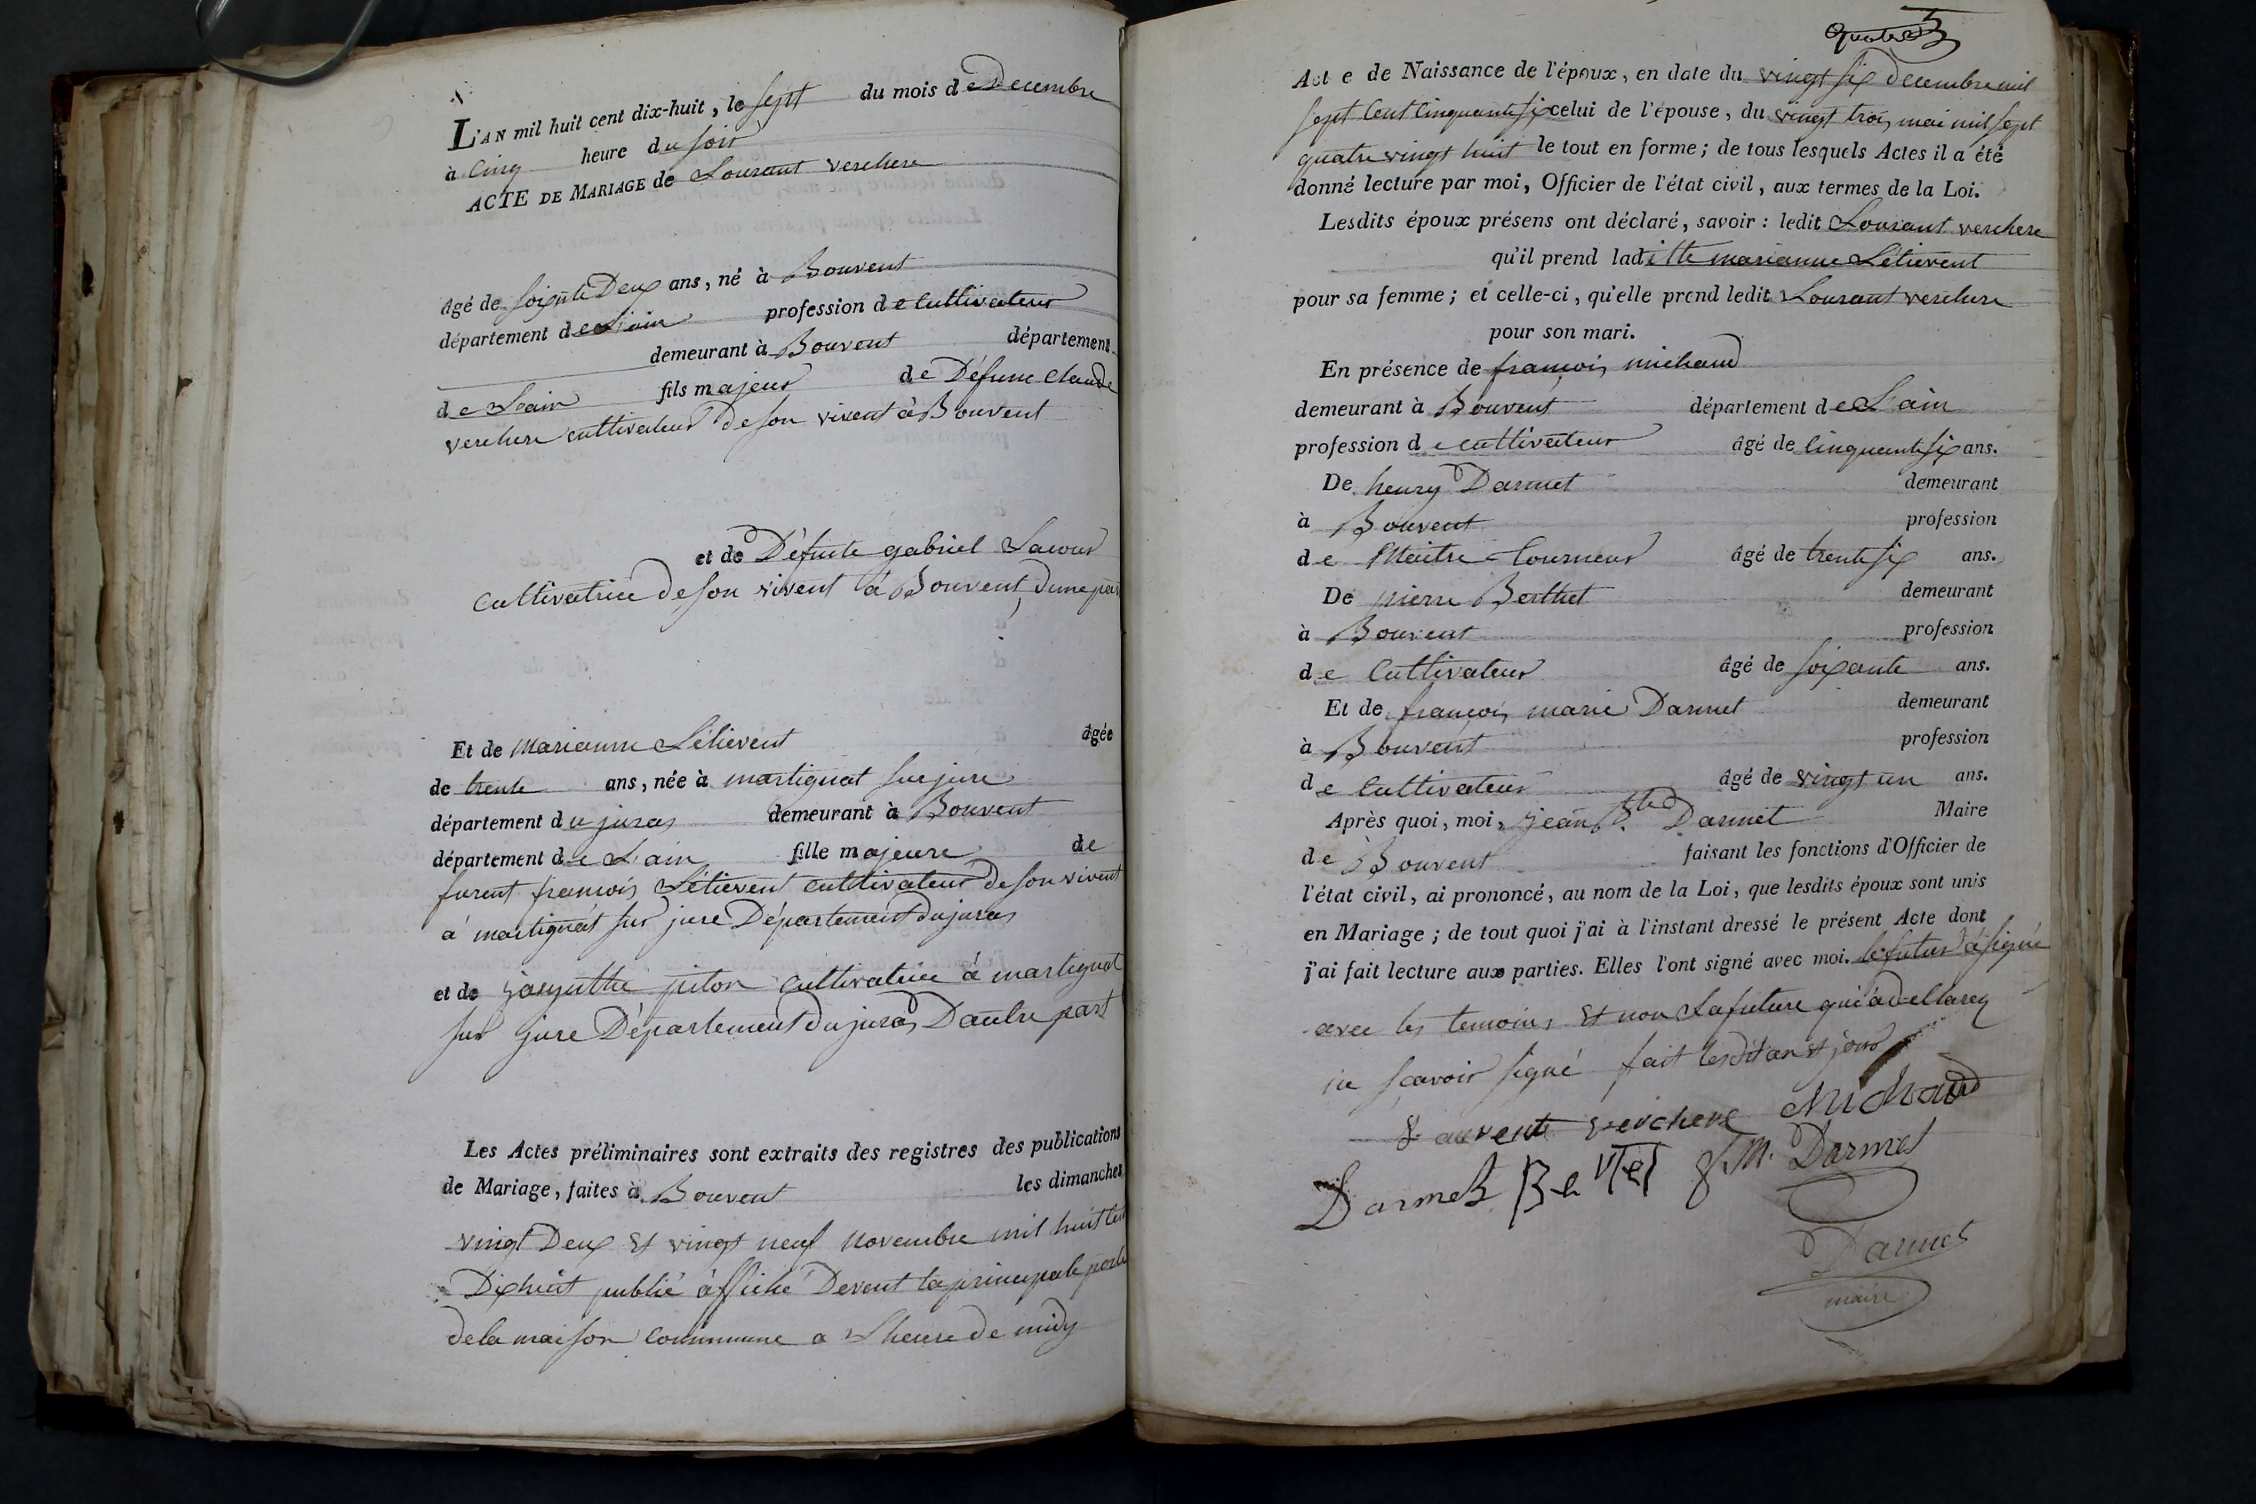 L'AN mil huit cent dix-huit, le sept du mois de Decembre
à Cinq heure du soir
ACTE DE MARIAGE de Lourant verchere
âgé de soixante Deux ans, né à Bouvent
département de L'ain profession de Cultivateur
demeurant à Bouvent département
de Lain fils majeur de Défunt Claude
verchere cultivateur de son vivent à Bouvent
et de Défunte gabriel Lacour
Cultivatrice de son vivent à Bouvent, dune part
Et de Marianne Létievent âgée
de trente ans, née à martignat sur jure
département du juras demeurant à Bouvent
département de L'ain fille majeure de
furent francois Létievent cultivateur de son vivent
à martignat sur jure Département du juras
et de jacynthe piton cultivatrice à martignat
sur jure Département du juras D'autre part
Les Actes préliminaires sont extraits des registres des publications
de Mariage, faites à Bouvent les dimanches
vingt Deux et vingt neuf novembre mil huit Cent
Dixhuit publié àffiché Devent la principale porte
de la maison Commune a L'heure de midy
Acte de Naissance de l'époux, en date du vingt six decembre mil
sept Cent Cinquante six celui de l'épouse, du vingt trois mai mil sept
quatre vingt huit le tout en forme; de tous lesquels Actes il a été
donné lecture par moi, Officier de l'état civil, aux termes de la Loi.
Lesdits époux présens ont déclaré, savoir : ledit Lourant verchere
qu'il prend laditte marianne Létievent
pour sa femme; et celle-ci, qu'elle prend ledit Lourant verchere
pour son mari.
En présence de francois michaud
demeurant à Bouvent département de L'ain
profession de cultivateur âgé de Cinquante six ans.
De henry Darmet demeurant
à Bouvent profession
de Maitre Tourneur âgé de trente six ans.
De pierre Berthet demeurant
à Bouvent profession
de Cultivateur âgé de soixante ans.
Et de francois marie Darmet demeurant
à Bouvent profession
de Cultivateur âgé de vingt un ans.
Après quoi, moi, jean Bte Darmet Maire
de Bouvent faisant les fonctions d'Officier de
l'état civil, ai prononcé, au nom de la Loi, que lesdits époux sont unis
en Mariage; de tout quoi j'ai à l'instant dressé le présent Acte dont
j'ai fait lecture aux parties. Elles l'ont signé avec moi. le futur à signé
avec les temoins et non La future qui à dellarez
ne scavoir signé fait lesdit an et jour
verchere Michaud
Darmet Bertet f. M. Darmet
Darmet
maire